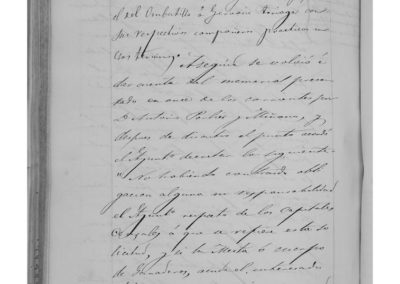 el del Ombutillo D. Gervacio Arriaga con
sus respectivos compañeros practicos en
las
Aseguida se volvió á
dar cuenta del memorial presen-
tado en once de los corrientes por
D. Antonio Pardiez y Miñano, y
despues de discutir el punto acordó
el Ayunt.º decretar lo siguiente.
"No habiendo contraido obli-
gacion alguna ni responsabilidad
el Ayunt.º respecto de los capitales
Censales á que se refiere esta so-
licitud, y si la Mesta ó cuerpo
de Ganaderos, acuda el interesado